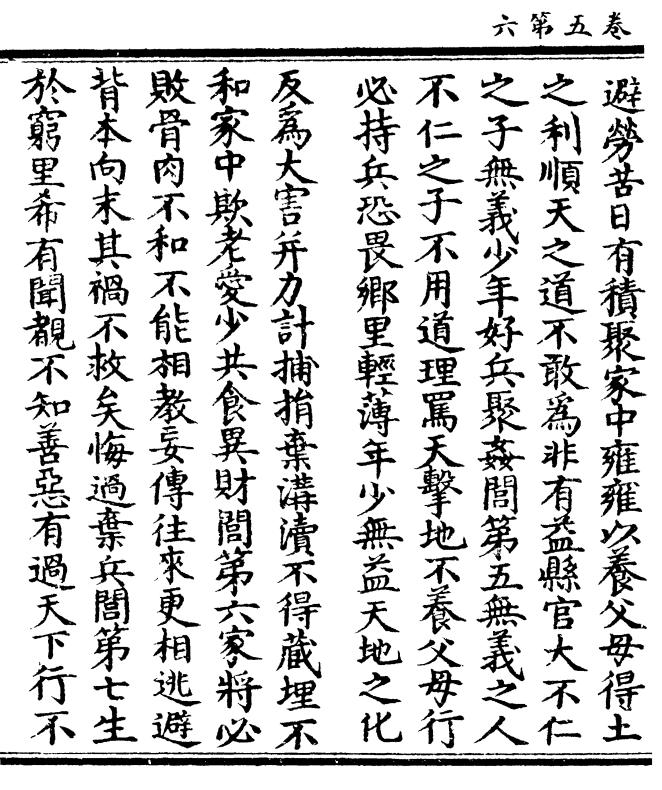 卷五第六
避勞苦日有積聚家中雍雍以養父母得土
之利順天之道不敢爲非有益縣官大不仁
之子無義少年好兵聚姦閭第五無義之人
不仁之子不用道理罵天擊地不養父母行
必持兵恐畏鄉里輕薄年少無益天地之化
反爲大害并力計捕捐棄溝瀆不得藏埋不
和家中欺老愛少共食異財閭第六家將必
敗骨肉不和不能相教妄傳往來更相逃避
背本向末其禍不救矣悔過棄兵閭第七生
於窮里希有聞覩不知善惡有過天下行不